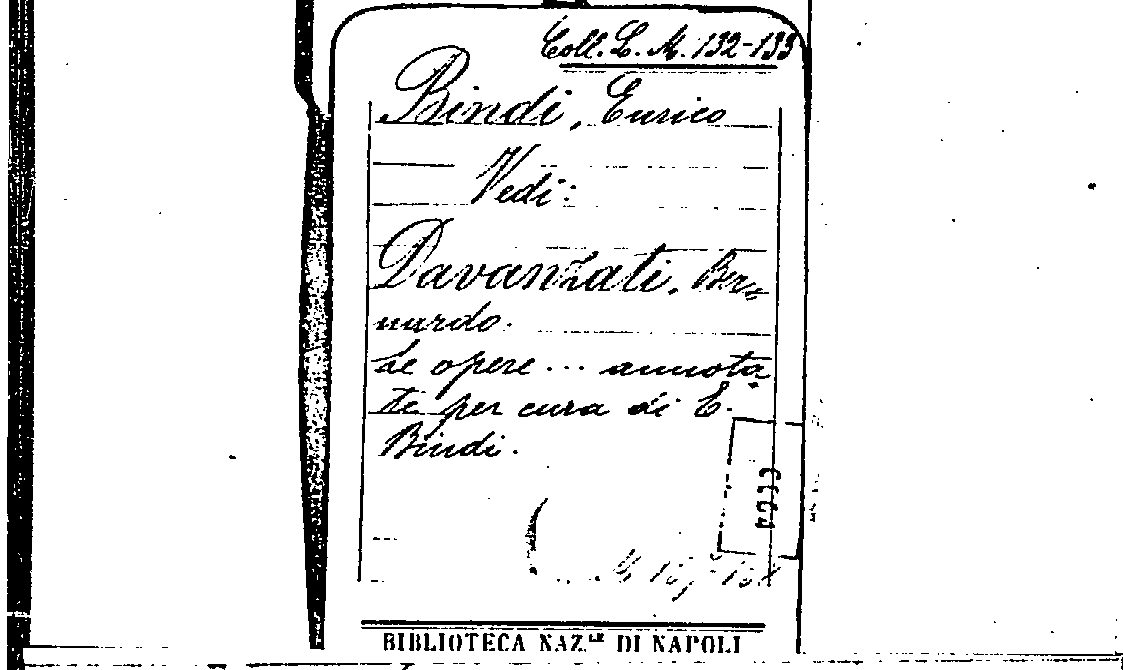 Coll. L. M. 132-133
Bindi, Enrico
Vedi:
Davanzati, Ber=
nardo.
Le opere ... annota
te per cura di E.
Bindi.
BIBLIOTECA NAZ.LE DI NAPOLI